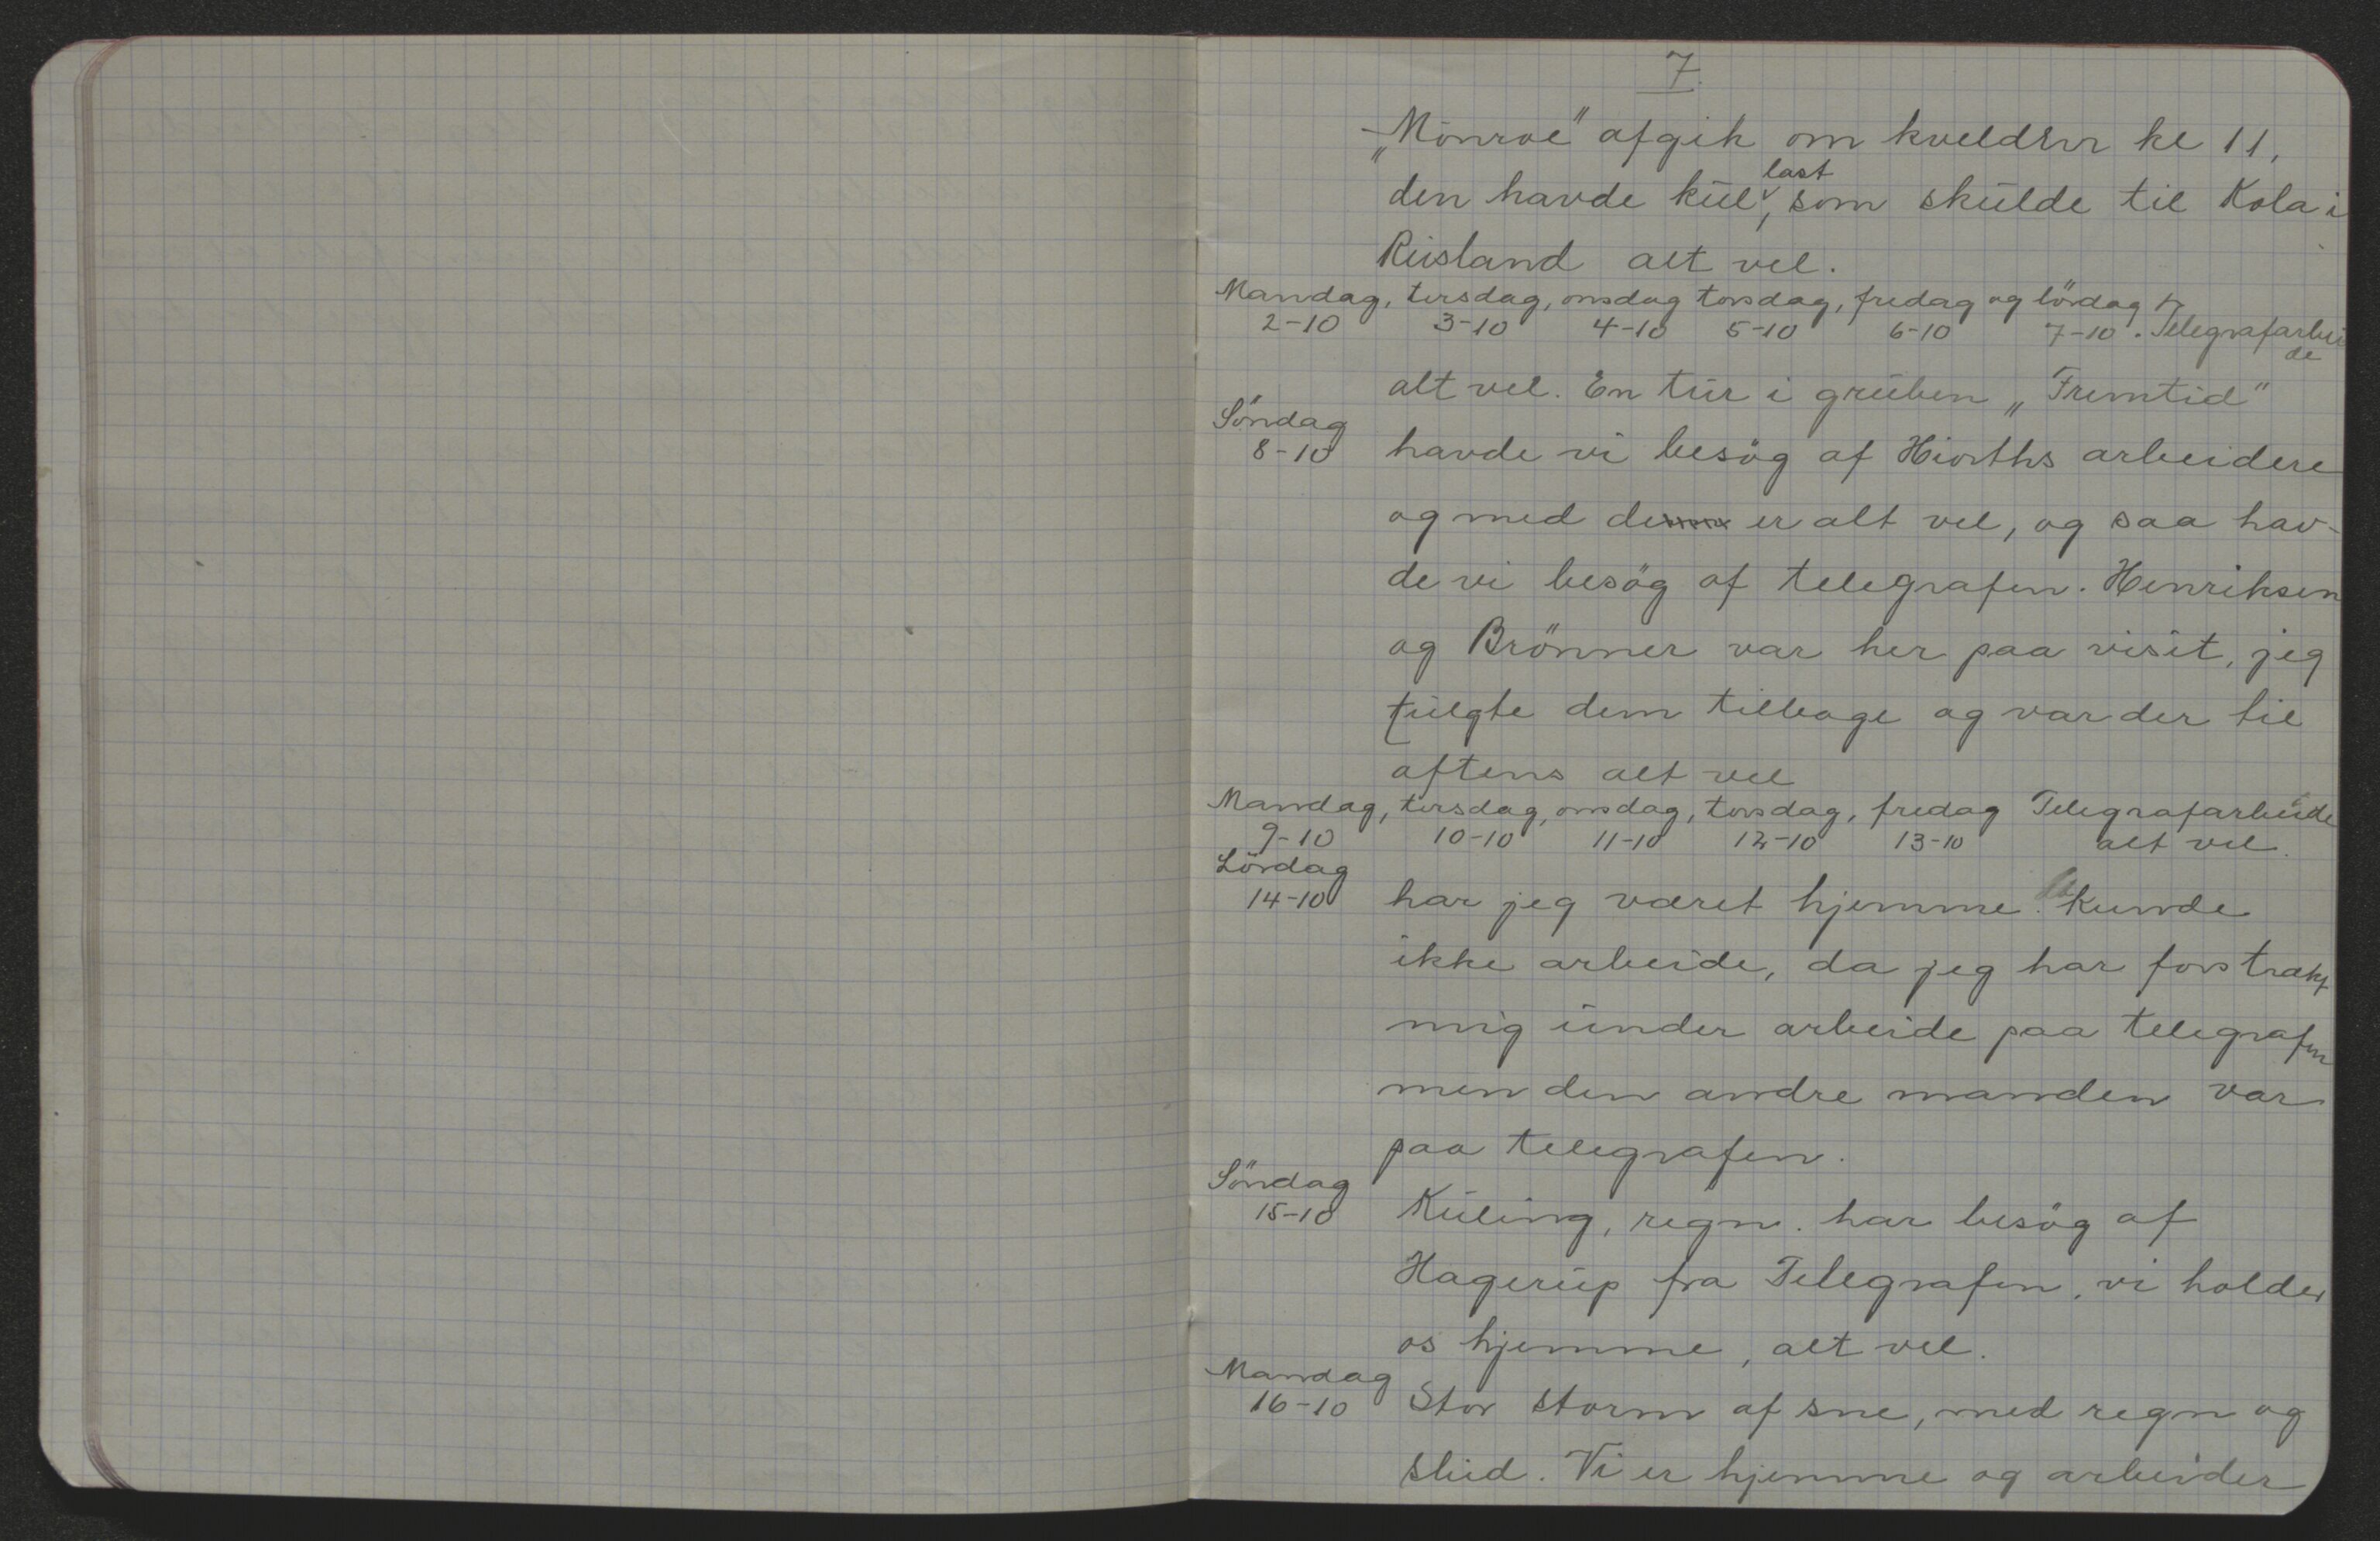 7.
„Monroe" afgik om kvelden kl 11,
den havde kul last, som skulde til Kola i
Rusland alt vel.
Mandag, tirsdag, onsdag torsdag, fredag og lördag
2-10 3-10 4-10 5-10 6-10 7-10. Telegrafarbei
de
alt vel. En tur i gruben „Fremtid"
Söndag
8-10 havde vi besög af Hiorths arbeidere
og med dem er alt vel, og saa hav-
de vi besög af telegrafen. Henriksen
og Brönner var her paa visit, jeg
fulgte dem tilbage og var der til
aftens alt vel
Mandag, tirsdag, onsdag, torsdag, fredag Telegrafarbeide
9-10 10-10 11-10 12-10 13-10 alt vel.
Lördag
14-10 har jeg været hjemme. Kunde
ikke arbeide, da jeg har forstrakt
mig under arbeide paa telegrafen
men den andre manden var
paa telegrafen.
Söndag
15-10 Kuling, regn. har besög af
Hagerup fra Telegrafen, vi holder
os hjemme, alt vel.
Mandag
16-10 Stor storm af sne, med regn og
slud. Vi er hjemme og arbeider